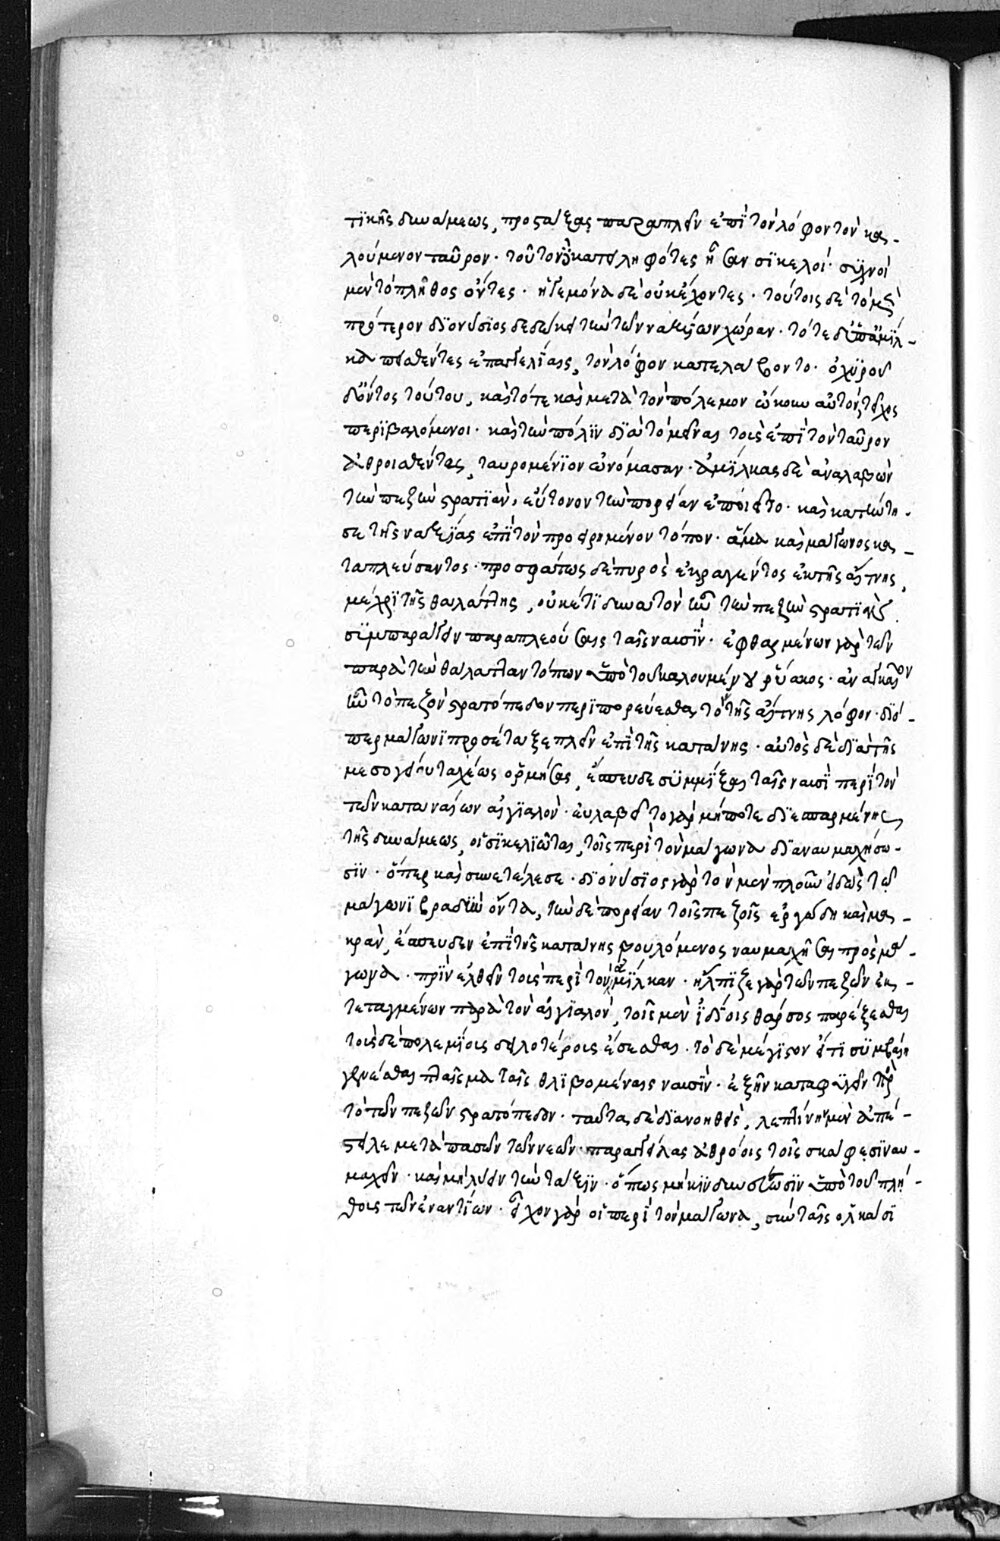 τϊκῆς δυνάμεως, προστάξας παραπλεῖν ἐπὶ τὸν λόφον τὸν κα-
λούμενον ταῦρον· τοῦτον δὲ κατειληφότες ἦσαν σϊκελοί· συχνοὶ
μὲν τὸ πλῆθος ὄντες· ἡγεμόνα δὲ οὐκ ἔχοντες· τούτοις δὲ τὸ μὲν
πρότερον δϊονύσϊος δεδώκει τὴν τῶν ναξίων χώραν· τότε δὲ ὑπ' ἀμΐλ-
κα πεισθέντες ἐπαγγελΐαις, τὸν λόφον κατελάβοντο· ὀχϋροῦ
δ' ὄντος τούτου, καὶ τότε καὶ μετὰ τὸν πόλεμον ᾤκουν αὐτὸν, τεῖχος
περϊβαλόμενοι· καὶ τὴν πόλϊν δϊὰ τὸ μεῖναι τοὺς ἐπὶ τὸν ταῦρον
ἀθροισθέντας, ταυρομένϊον ὠνόμασαν· ἀμΐλκας δὲ ἀναλαβὼν
τὴν πεζὴν στρατϊὰν, εὔτονον τὴν πορείαν ἐποιεῖτο· καὶ κατήντη-
σε τῆς ναξΐας ἐπὶ τὸν προειρημένον τόπον· ἅμα καὶ μάγωνος κα-
ταπλεύσαντος· προσφάτως δὲ πυρὸς ἐκραγέντος ἐκ τῆς αἴτνης,
μέχρϊ τῆς θαλάττης, οὐκέτϊ δυνατὸν ἦν τὴν πεζὴν στρατϊὰν
σϋμπαράγειν παραπλεούσαις ταῖς ναυσΐν· ἐφθαρμένων γὰρ τῶν
παρὰ τὴν θάλατταν τόπων ὑπὸ τοῦ καλουμένου ῥύακος· ἀναγκαῖον
ἦν τὸ πεζὸν στρατόπεδον περϊπορεύεσθαι τὸν τῆς αἴτνης λόφον· δϊό-
περ μάγωνϊ προσέταξε πλεῖν ἐπὶ τῆς κατάνης· αὐτὸς δὲ δϊὰ τῆς
μεσογείου ταχέως ὁρμήσας, ἔσπευδε σϋμμῖξαι ταῖς ναυσὶ περὶ τὸν
τῶν καταναίων αἰγϊαλόν· εὐλαβεῖτο γὰρ μήποτε δϊεσπαρμένης
τῆς δυνάμεως, οἱ σϊκελϊῶται, τοῖς περὶ τὸν μάγωνα δϊαναυμαχήσω-
σϊν· ὅπερ καὶ συνετέλεσε· δϊονύσϊος γὰρ τὸν μὲν πλοῦν εἰδὼς τῷ
μάγωνϊ βραδὺν ὄντα, τὴν δὲ πορείαν τοῖς πεζοῖς ἐργώδη καὶ μα-
κρὰν, ἔσπευδεν ἐπὶ τῆς κατάνης βουλόμενος ναυμαχῆσαι πρὸς μά-
γωνα· πρὶν ἐλθεῖν τοὺς περὶ τὸν ἀμΐλκαν· ἤλπϊζε γὰρ τῶν πεζῶν ἐκ-
τεταγμένων παρὰ τὸν αἰγϊαλὸν, τοῖς μὲν ἰδΐοις θάρσος παρέξεσθαι
τοὺς δὲ πολεμΐους δειλοτέρους ἔσεσθαι· τὸ δὲ μέγϊστον εἴ τϊ σϋμβαίη
γενέσθαι πταῖσμα ταῖς θλϊβομέναις ναυσΐν· ἐξῆν καταφϋγεῖν πρὸς
τὸ τῶν πεζῶν στρατόπεδον· ταῦτα δὲ δϊανοηθεὶς, λεπτΐνην μὲν ἀπέ-
στειλε μετὰ πασῶν τῶν νεῶν· παραγγείλας ἀθρόοις τοῖς σκάφεσϊ ναυ-
μαχεῖν· καὶ μὴ λύειν τὴν τάξϊν· ὅπως μὴ κϊνδυνεύσωσϊν ὑπὸ τοῦ πλή-
θους τῶν ἐναντΐων· εἶχον γὰρ οἱ περὶ τὸν μάγωνα, σὺν ταῖς ὁλκάσϊ